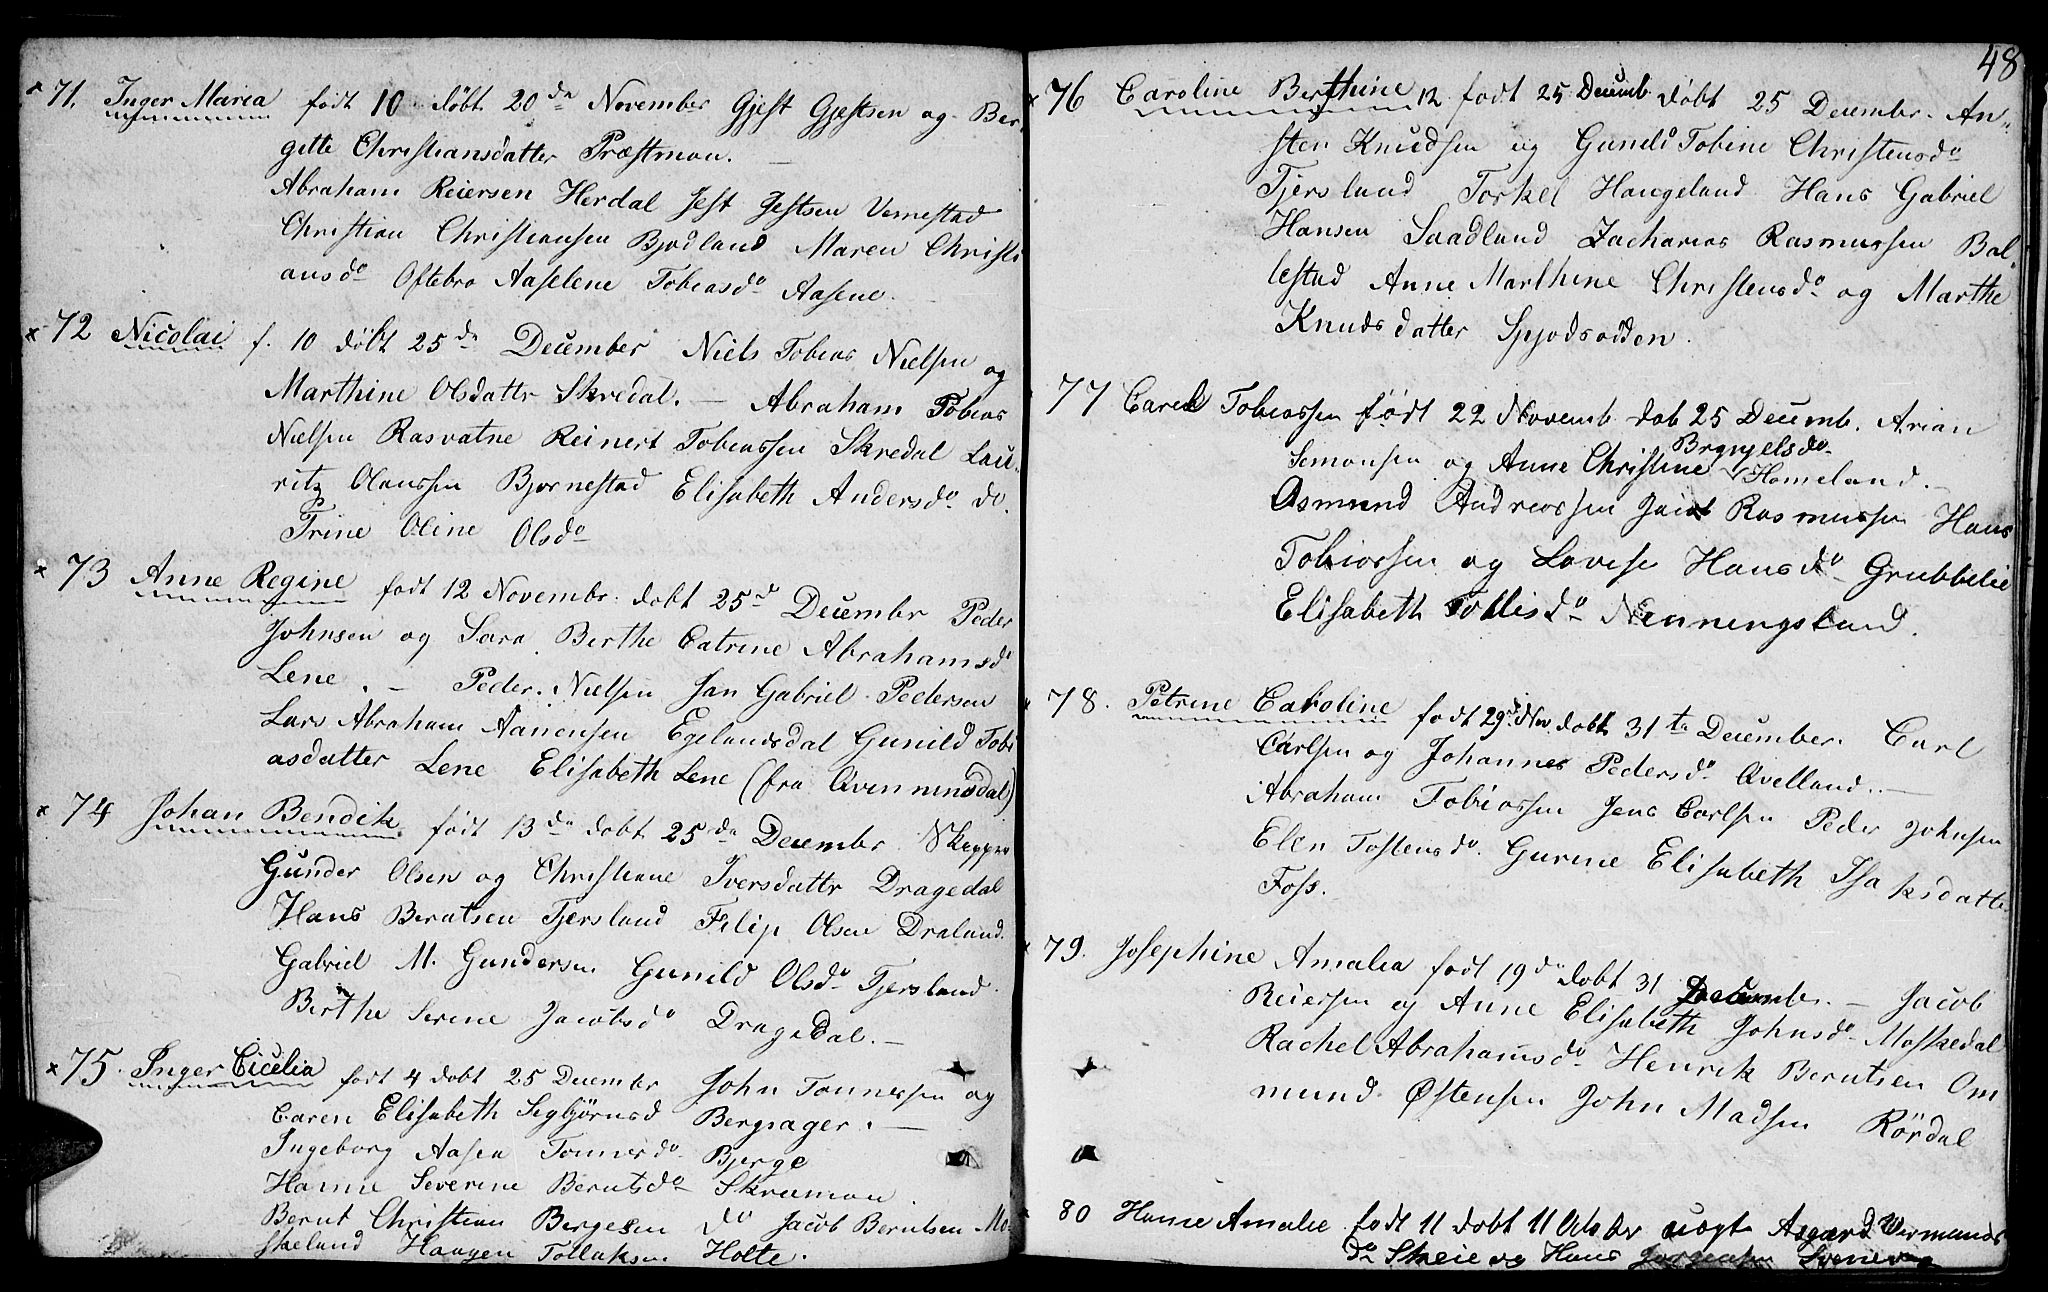 × 71. Inger Maria født 10 døbt 20de November Gjest Gjestsen og Ber
gitte Christiansdatter Præstmon. —
Abraham Reiersen Herdal Jest Jestsen Vemestad
Christian Christiansen Bjødland Maren Christi
ansdo Oftebro Aaselene Tobiasdo Aasene.
× 72 Nicolai f. 10 døbt 25de December Niels Tobias Nielsen og
Marthine Olsdattr Skredal. — Abraham Tobias
Nielsen Rasvatne Reinert Tobiassen Skredal Lau
ritz Olaussen Bjornestad Elisabeth Andersdo do.
Trine Oline Olsdo
× 73 Anne Regine født 12 Novembr. dobt 25d Decembr Peder
Johnsen og Sara Berthe Catrine Abrahamsdo
Lene. — Peder Nielsen Jan Gabriel Pedersen
Lars Abraham Aanensen Egelandsdal Gunild Tobi
asdatter Lene Elisabeth Lene (fra Qvenninsdal)
× 74 Johan Bendik født 13de dobt 25de Decembr. Skepper
Gunder Olsen og Christiane Iversdattr Dragedal
Hans Berntsen Tjersland Filip Olsen Draland.
Gabriel M. Gundersen Gunild Olsdo Tjersland.
Birthe Serine Jacobsdo Dragedal. —
× 75. Inger Cicilia født 4 dobt 25 Decembr John Tonnessen og
Caren Elisabeth Segbjörnsd Bergsager. —
Ingeborg Aasen Tonnesdo Bjerge
Hanne Severine Berntsdo Skreimon.
Bernt Christian Bergesen do Jacob Berntsen Mo
skeland Haagen Tollaksen Holte.
48
× 76 Caroline Berthine 12 født 25 Decemb døbt 25 Decembr. An„
sten Knudsen og Gunild Tobine Christensdo
Tjersland Torkel Haugeland Hans Gabriel
Hansen Saadland Zacharias Rasmussen Bal„
lestad Anne Marthine Christensdo og Marthe
Knudsdatter Spjodsodden.
77 Carel Tobiassen født 22 Novemb døb 25 Decemb. Arian
Simonsen og Anne Christine Brynjelsdo Homeland. —
Osmund Andreassen Rasmussen Hans
Tobiassen og Lovise Hansdo Grubbelie
Elisabeth Tollisdo Nenningsland.
78. Petrine Caroline født 29d Nov. dobt 31te December. Carl
Carlsen og Johanne Pedersdo Qvelland. —
Abraham Tobiassen Jens Carlsen Peder Johnsen
Elen Tostensdo. Gurine Elisabeth Isaksdatte
Foss.
79. Josephine Amalia født 19d dobt 31 Decembr. — Jacob
Reiersen og Anne Elisabeth Johnsdo Moskedal
Rachel Abrahamsdo Henrik Berntsen Om
mund Østensen John Madsen Rördal
80 Hanne Amalie født 11 dobt 11 October uægt Asgierd Vermunds
do Skeie og Hans Jorgensen